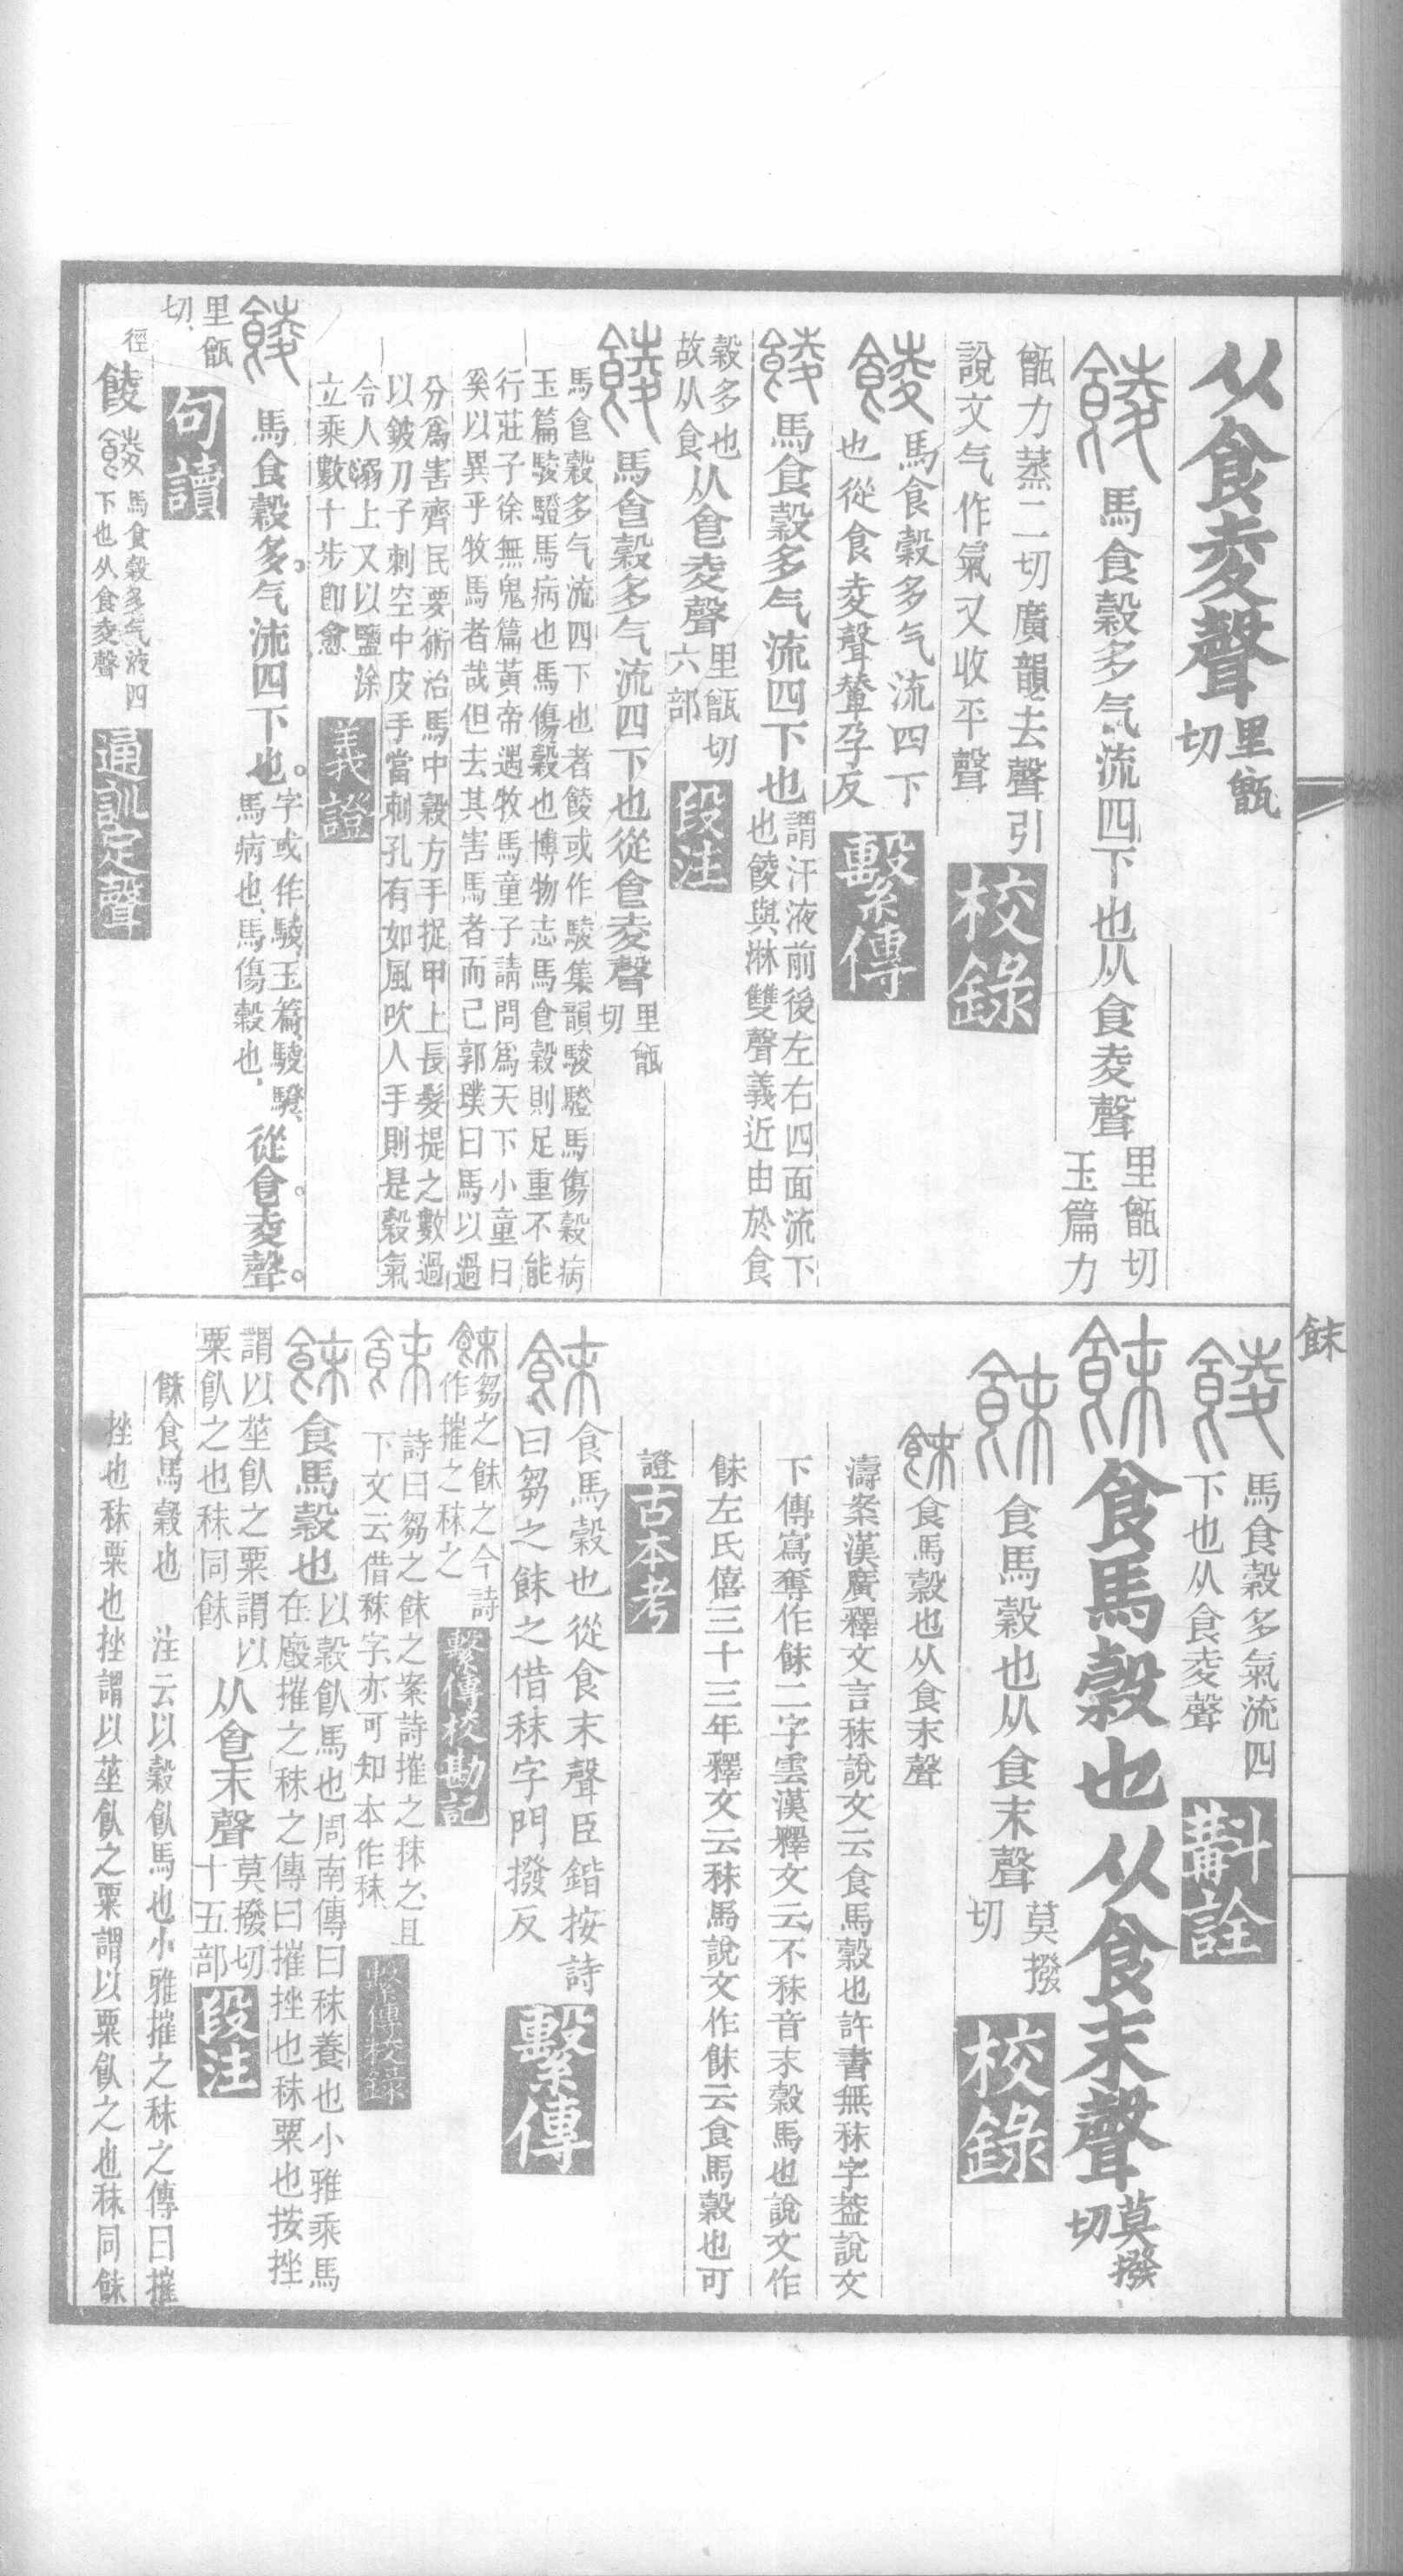 从食夌聲里甑切
餧馬食穀多气流四下也从食夌聲里甑切玉篇力
甑力蒸二切廣韻去聲引
說文气作氣又收平聲
校錄
馬食穀多气流四下
也從食夌聲輦孕反
繫傳
馬食穀多气流四下也謂汗液前後左右四面流下
也餕與淋雙聲義近由於食
穀多也
故从食
从𠊊夌聲里甑切
六部
段注
馬𠊊穀多气流四下也從𠊊夌聲里甑切
馬𠊊穀多气流四下也者餕或作䮚集韻䮚䮴馬傷穀病
玉篇䮚䮴馬病也馬傷穀也博物志馬𠊊穀則足重不能
行莊子徐無鬼篇黃帝遇牧馬童子請問爲天下小童曰
奚以異乎牧馬者哉但去其害馬者而已郭璞曰馬以過
分爲害齊民要術治馬中穀方手捉甲上長髮提之數過
以鈹刀子刺空中皮手當刺孔有如風吹人手則是穀氣
令人溺上又以鹽涂
立乘數十步卽愈
義證
馬食穀多气流四下也字或作䮚玉篇䮚䮴
馬病也馬傷穀也
從𠊊夌聲
里甑
切
句讀
徑
馬食穀多气液四
下也从食夌聲
通訓定聲
馬食穀多氣流四
下也从食夌聲
斠詮
食馬穀也从食末聲莫撥切
食馬穀也从食末聲莫撥切
校錄
食馬穀也从食末聲
濤案漢廣釋文言秣說文云食馬穀也許書無秣字葢說文
下傳寫奪作䬴二字雲漢釋文云不秣音末穀馬也說文作
䬴左氏僖三十三年釋文云秣馬說文作䬴云食馬穀也可
證
古本考
食馬穀也從食末聲臣鍇按詩
曰芻之䬴之借秣字門撥反
繫傳
芻之䬴之今詩
作摧之秣之
繫傳校勘記
詩曰芻之䬴之案詩摧之抹之且
下文云借秣字亦可知本作秣
繫傳校錄
食馬穀也以穀飤馬也周南傳曰秣養也小雅乘馬
在廄摧之秣之傳曰摧挫也秣粟也按挫
謂以莝飤之粟謂以
粟飤之也秣同䬴
从𠊊末聲莫撥切
十五部
段注
䬴食馬穀也　注云以穀飤馬也小雅摧之秣之傳曰摧
挫也秣粟也挫謂以莝飤之粟謂以粟飤之也秣同䬴
䬴